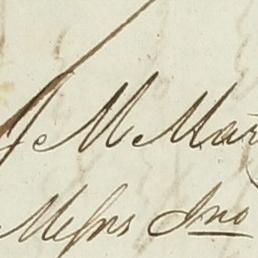 Je M Mar
Messrs Jno